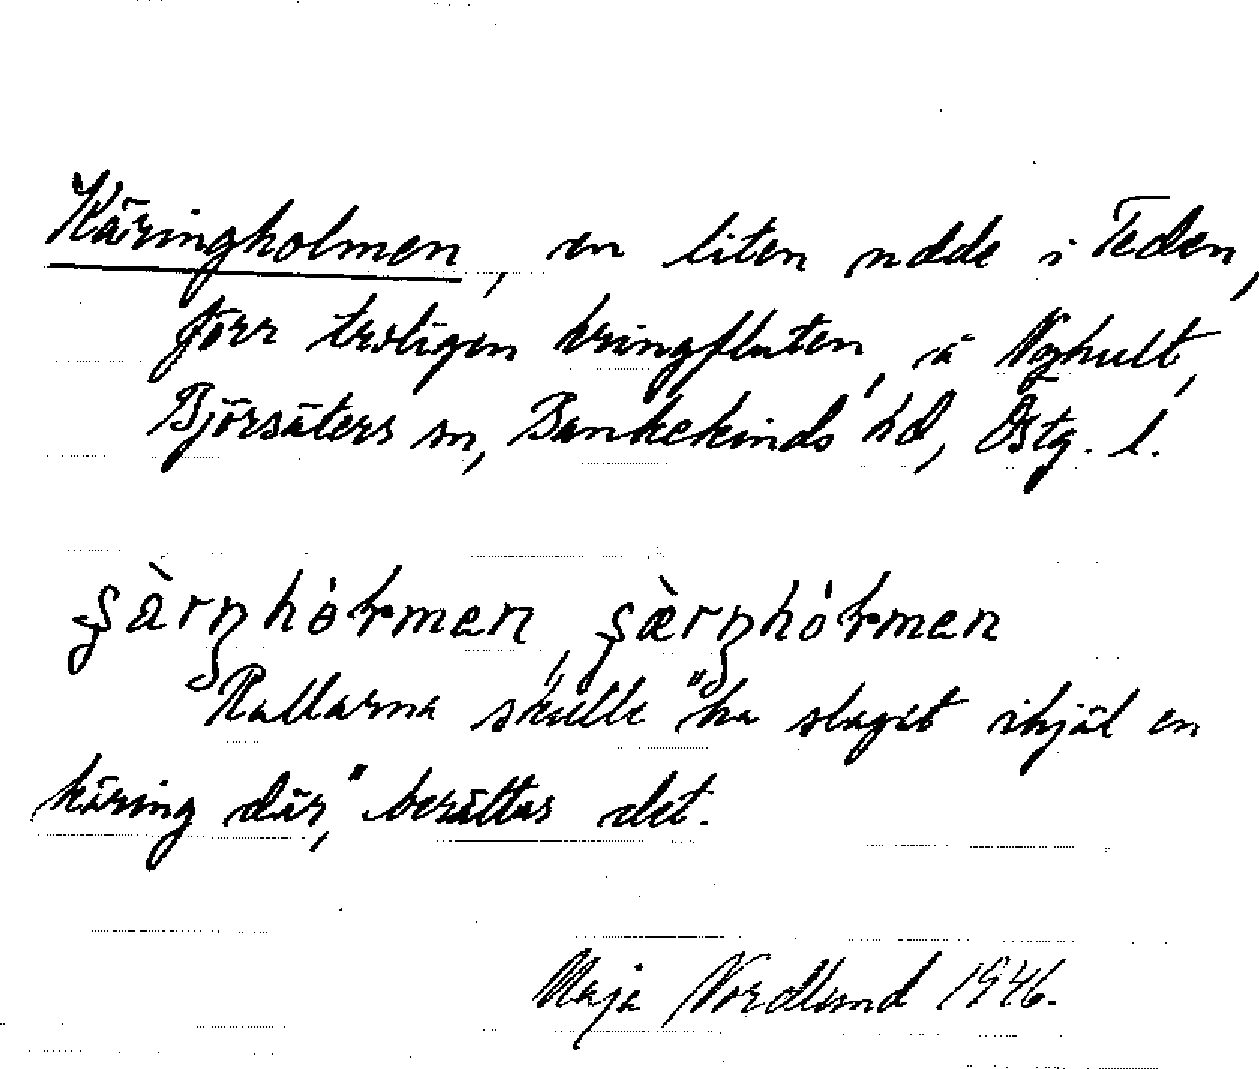 Käringholmen, en liten udde i Teden,
förr troligen kringfluten, å Nyhult,
Björsäters sn, Bankekinds hd, Östg. l.
"Rallarna skulle "ha slaget ihjäl en
käring där," berättas det.
Maja Nordlund 1946.